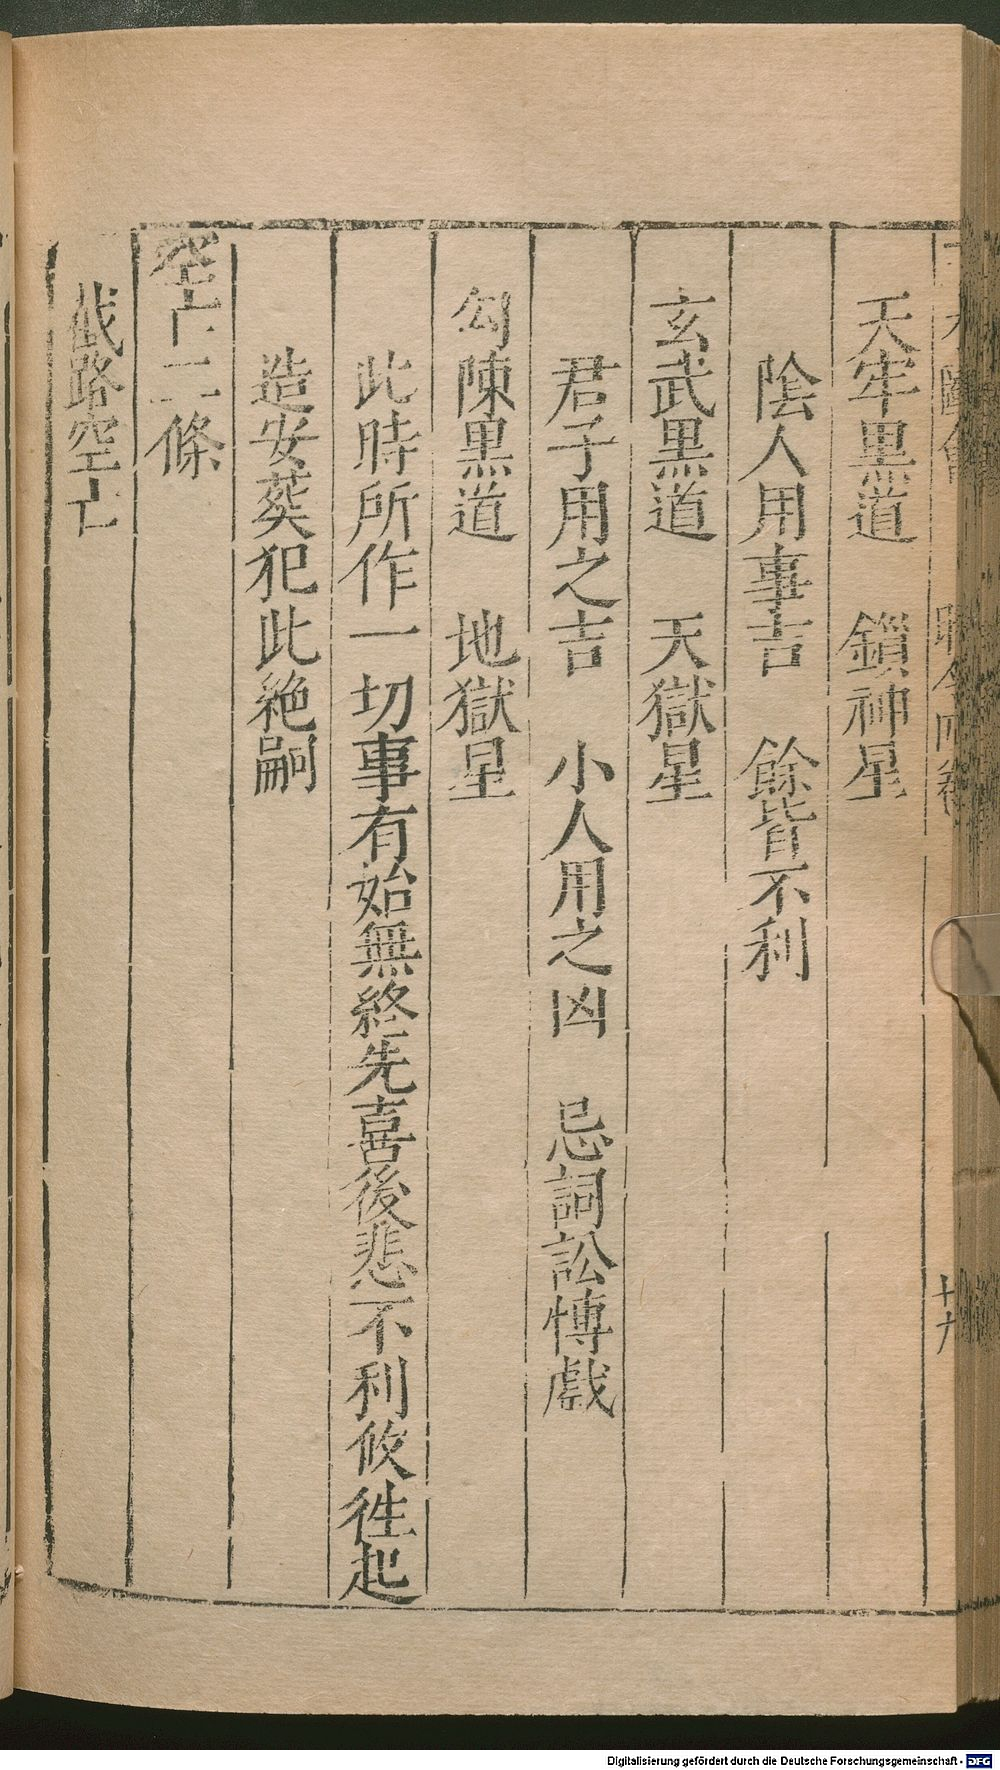 三才圖會 時令四卷 十六
天牢黑道 鎖神星
陰人用事吉 餘皆不利
玄武黑道 天獄星
君子用之吉 小人用之凶 忌詞訟愽戲
勾陳黑道 地獄星
此時所作一切事有始無終先喜後悲不利攸徃起
造安葬犯此絶嗣
空亡二條
截路空亡
Digitalisierung gefördert durch die Deutsche Forschungsgemeinschaft - DFG